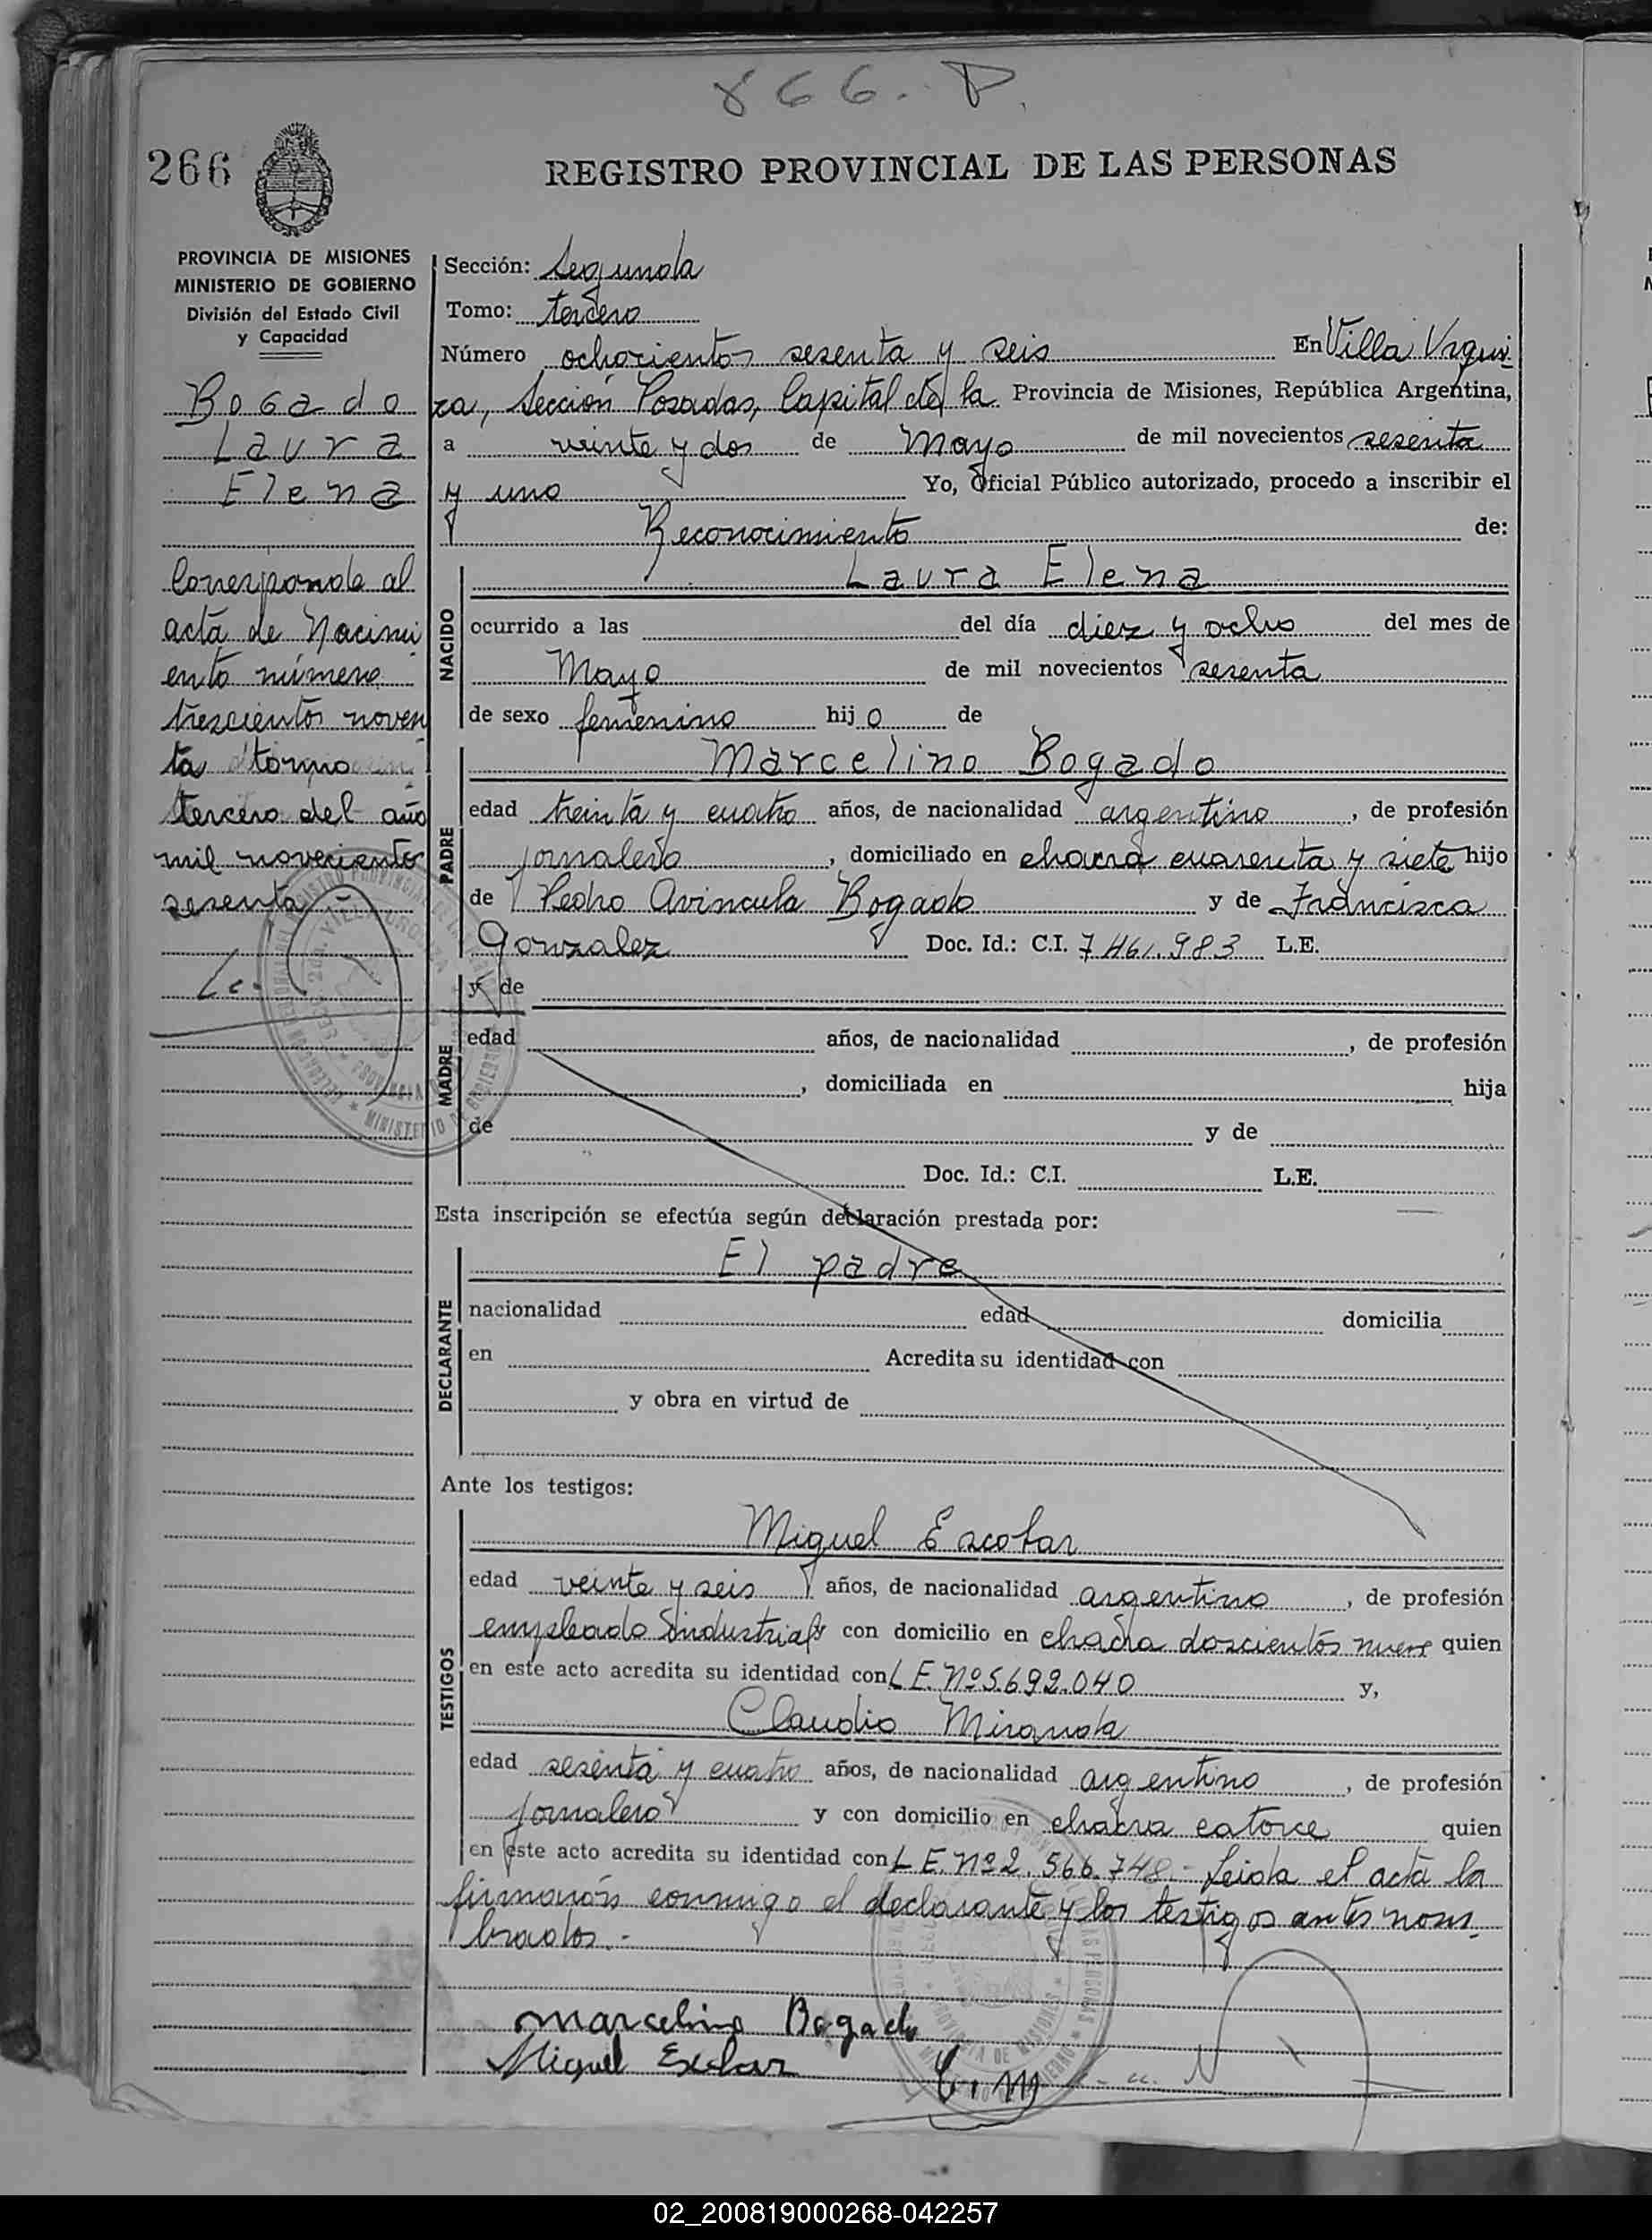 866. P.
266
REGISTRO PROVINCIAL DE LAS PERSONAS
PROVINCIA DE MISIONES
MINISTERIO DE GOBIERNO
División del Estado Civil
y Capacidad
Bogado
Laura
Elena
Corresponde al
acta de Nacimi
ento número
trescientos noven
ta tomo
tercero del año
mil novecientos
sesenta
Sección: Segunda
Tomo: tercero
Número ochocientos sesenta y seis En Villa Urqui
za, Sección Posadas, Capital de la Provincia de Misiones, República Argentina,
a veinte y dos de Mayo de mil novecientos sesenta
y uno Yo, Oficial Público autorizado, procedo a inscribir el
Reconocimiento de:
Laura Elena
NACIDO
ocurrido a las del día diez y ocho del mes de
Mayo de mil novecientos sesenta
de sexo femenino hijo de
Marcelino Bogado
PADRE
edad treinta y cuatro años, de nacionalidad argentino, de profesión
jornalero, domiciliado en chacra cuarenta y siete hijo
de Pedro Avincula Bogado y de Francisca
Gonzalez Doc. Id.: C.I. 7461.983 L.E.
y de
MADRE
edad años, de nacionalidad , de profesión
, domiciliada en hija
de y de
Doc. Id.: C.I. L.E.
Esta inscripción se efectúa según declaración prestada por:
El padre
DECLARANTE
nacionalidad edad domicilia
en Acredita su identidad con
y obra en virtud de
Ante los testigos:
Miguel Escobar
TESTIGOS
edad veinte y seis años, de nacionalidad argentino, de profesión
empleado industrial y con domicilio en chacra doscientos nueve quien
en este acto acredita su identidad con L E. Nº 5.692.040 y,
Claudio Miranda
edad sesenta y cuatro años, de nacionalidad argentino, de profesión
jornalero y con domicilio en chacra catorce quien
en este acto acredita su identidad con L E. Nº 2.566.748.- Leida el acta la
firmaron conmigo el declarante y los testigos antes nom
brados.-
Marcelino Bogado
Miguel Escobar
C. M
02_200819000268-042257